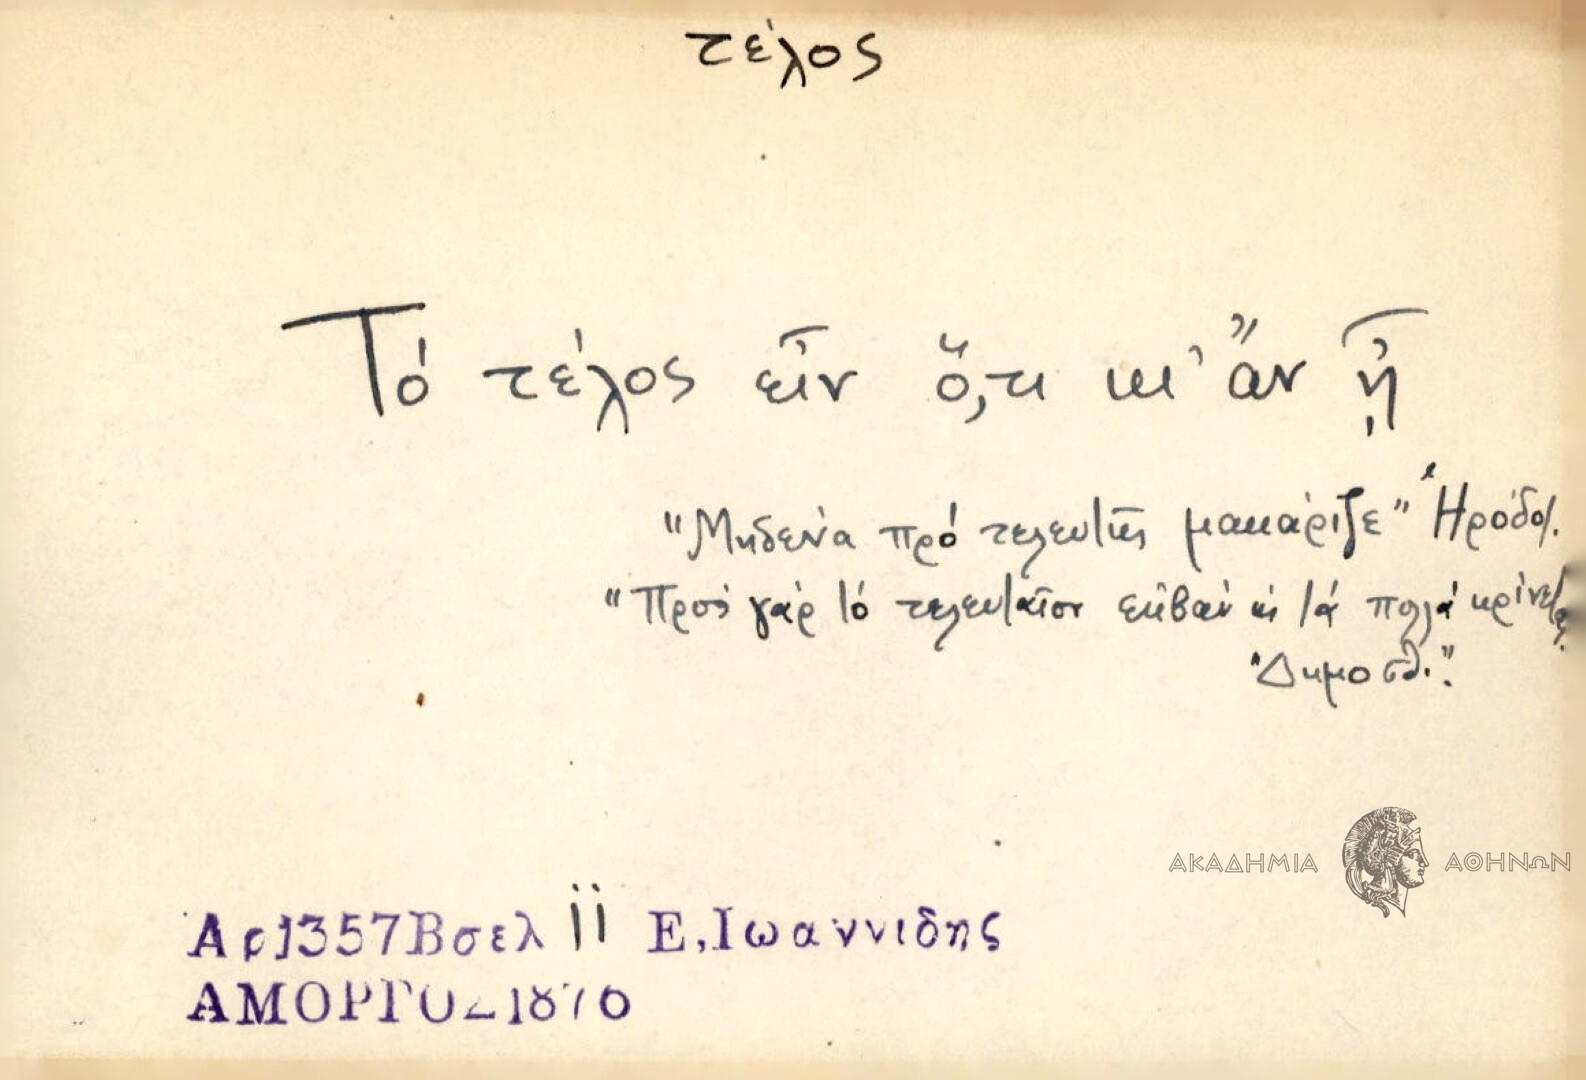 τέλος
Τό τέλος εἶν ὅ,τι κι' ἂν ᾖ
"Μηδένα πρό τελευτῆς μακάριζε" Ἡρόδοτ.
"Πρός γάρ τό τελευταῖον ἐκβάν κι τά πολλά κρίνεται.
"Δημοσθ."
ΑΚΑΔΗΜΙΑ ΑΘΗΝΩΝ
Αρ1357Βσελ 11 Ε,Ιωαννιδης
ΑΜΟΡΓΟΣ1876